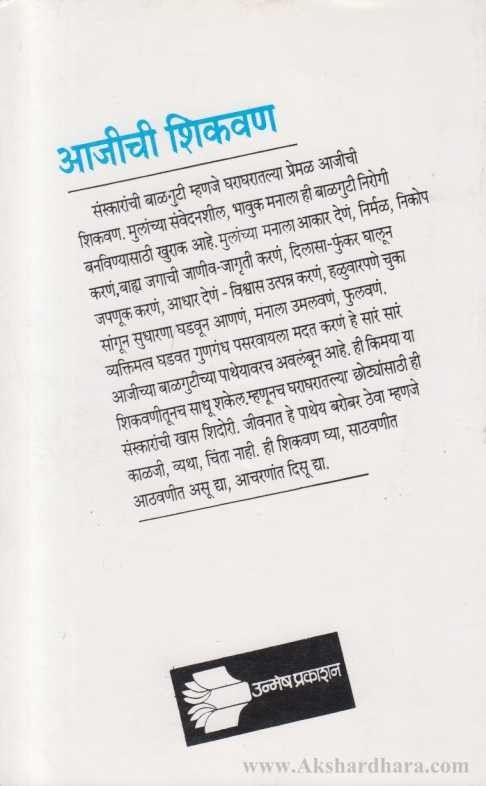 आजीची शिकवण
संस्कारांची बाळगुटी म्हणजे घराघरातल्या प्रेमळ आजीची
शिकवण. मुलांच्या संवेदनशील, भावुक मनाला ही बाळगुटी निरोगी
बनविण्यासाठी खुराक आहे. मुलांच्या मनाला आकार देणं, निर्मळ, निकोप
करणं,बाह्य जगाची जाणीव-जागृती करणं, दिलासा-फुंकर घालून
जपणूक करणं, आधार देणं - विश्वास उत्पन्न करणं, हळुवारपणे चुका
सांगून सुधारणा घडवून आणणं, मनाला उमलवणं, फुलवणं.
व्यक्तिमत्व घडवत गुणगंध पसरवायला मदत करणं हे सारं सारं
आजीच्या बाळगुटीच्या पाथेयावरच अवलंबून आहे. ही किमया या
शिकवणीतूनच साधू शकेल.म्हणूनच घराघरातल्या छोट्यांसाठी ही
संस्कारांची खास शिदोरी. जीवनात हे पाथेय बरोबर ठेवा म्हणजे
काळजी, व्यथा, चिंता नाही. ही शिकवण घ्या, साठवणीत
आठवणीत असू द्या, आचरणांत दिसू द्या.
उन्मेष प्रकाशन
www.Akshardhara.com